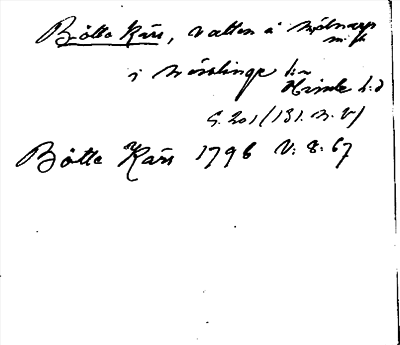 Bötte Kärr, vatten å
m. fl.
i Värslinge sn
Himle hd
S. 201 (131. N. V)
Bötte Kärr 1796 V: 8: 67